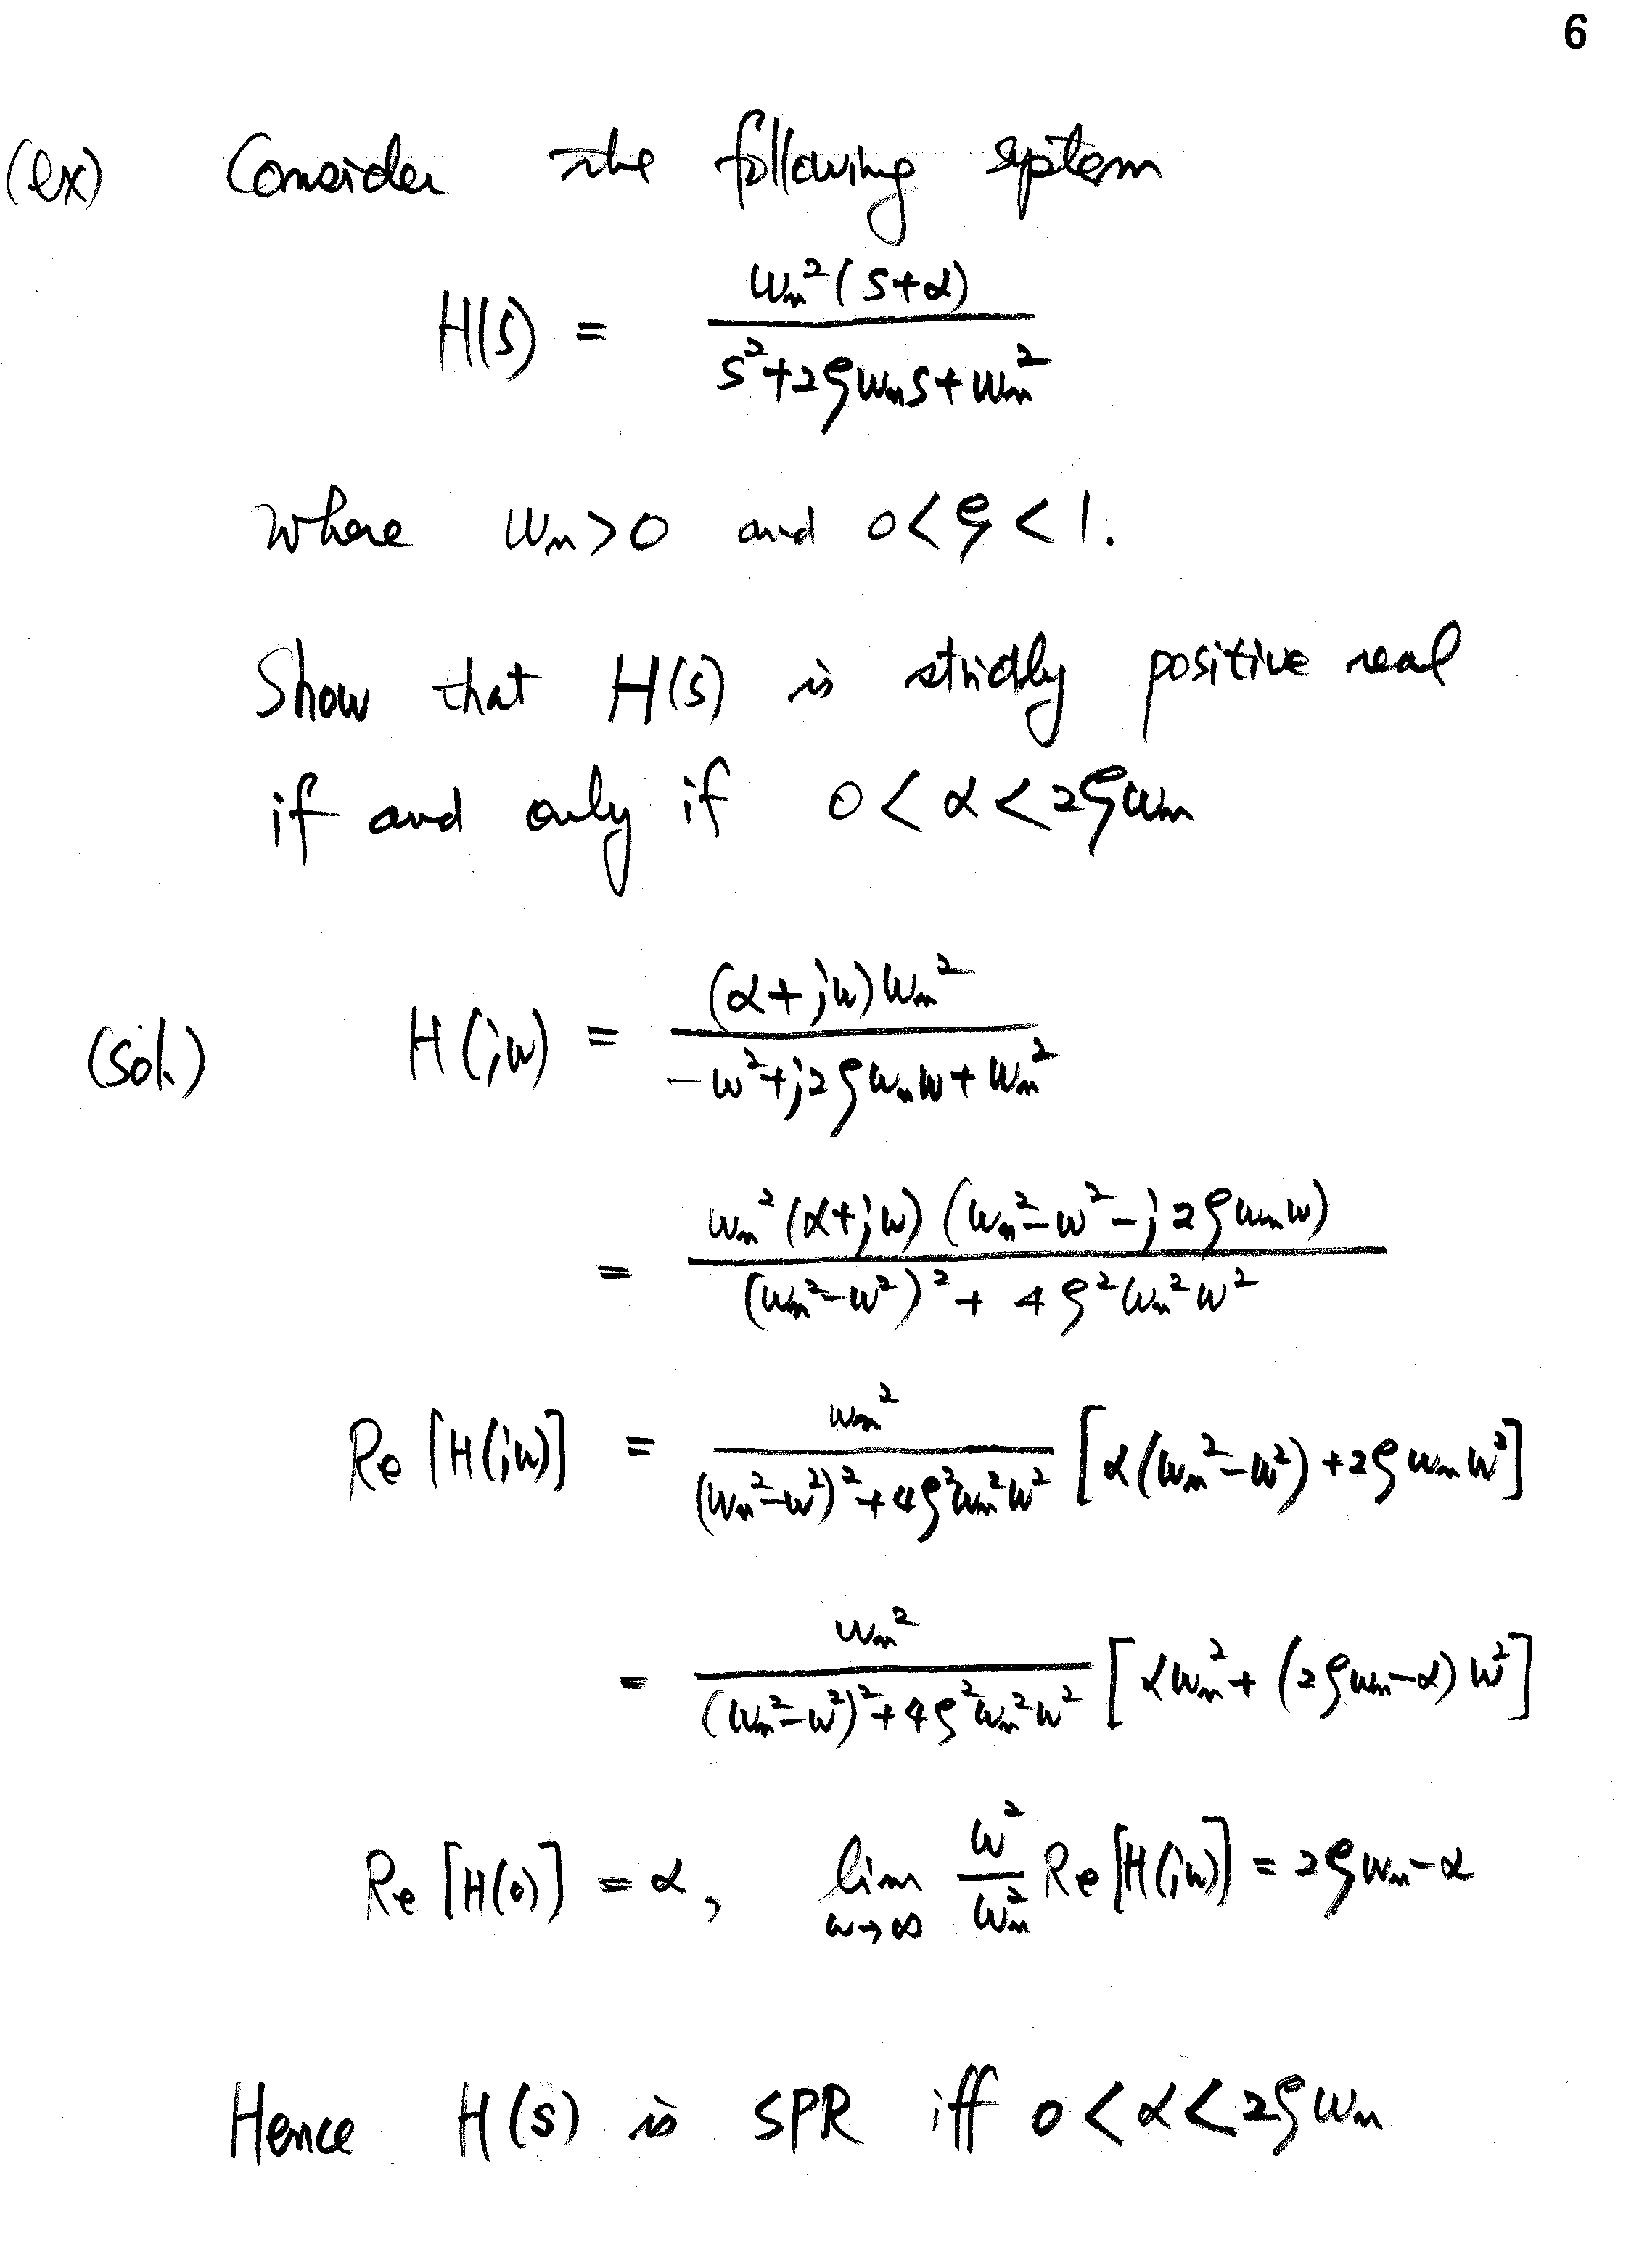 6
(ex) Consider the following system
H(s) = ωn²(s+α) / (s²+2ζωns+ωn²)
where ωn>0 and 0<ζ<1.
Show that H(s) is strictly positive real
if and only if 0<α<2ζωn
(sol.) H(jω) = (α+jω)ωn² / (-ω²+j2ζωnω+ωn²)
= ωn²(α+jω)(ωn²-ω²-j2ζωnω) / ((ωn²-ω²)²+4ζ²ωn²ω²)
Re[H(jω)] = ωn² / ((ωn²-ω²)²+4ζ²ωn²ω²) [α(ωn²-ω²)+2ζωnω²]
= ωn² / ((ωn²-ω²)²+4ζ²ωn²ω²) [αωn²+(2ζωn-α)ω²]
Re[H(0)] = α, lim ω→∞ ω²/ωn² Re[H(jω)] = 2ζωn-α
Hence H(s) is SPR iff 0<α<2ζωn